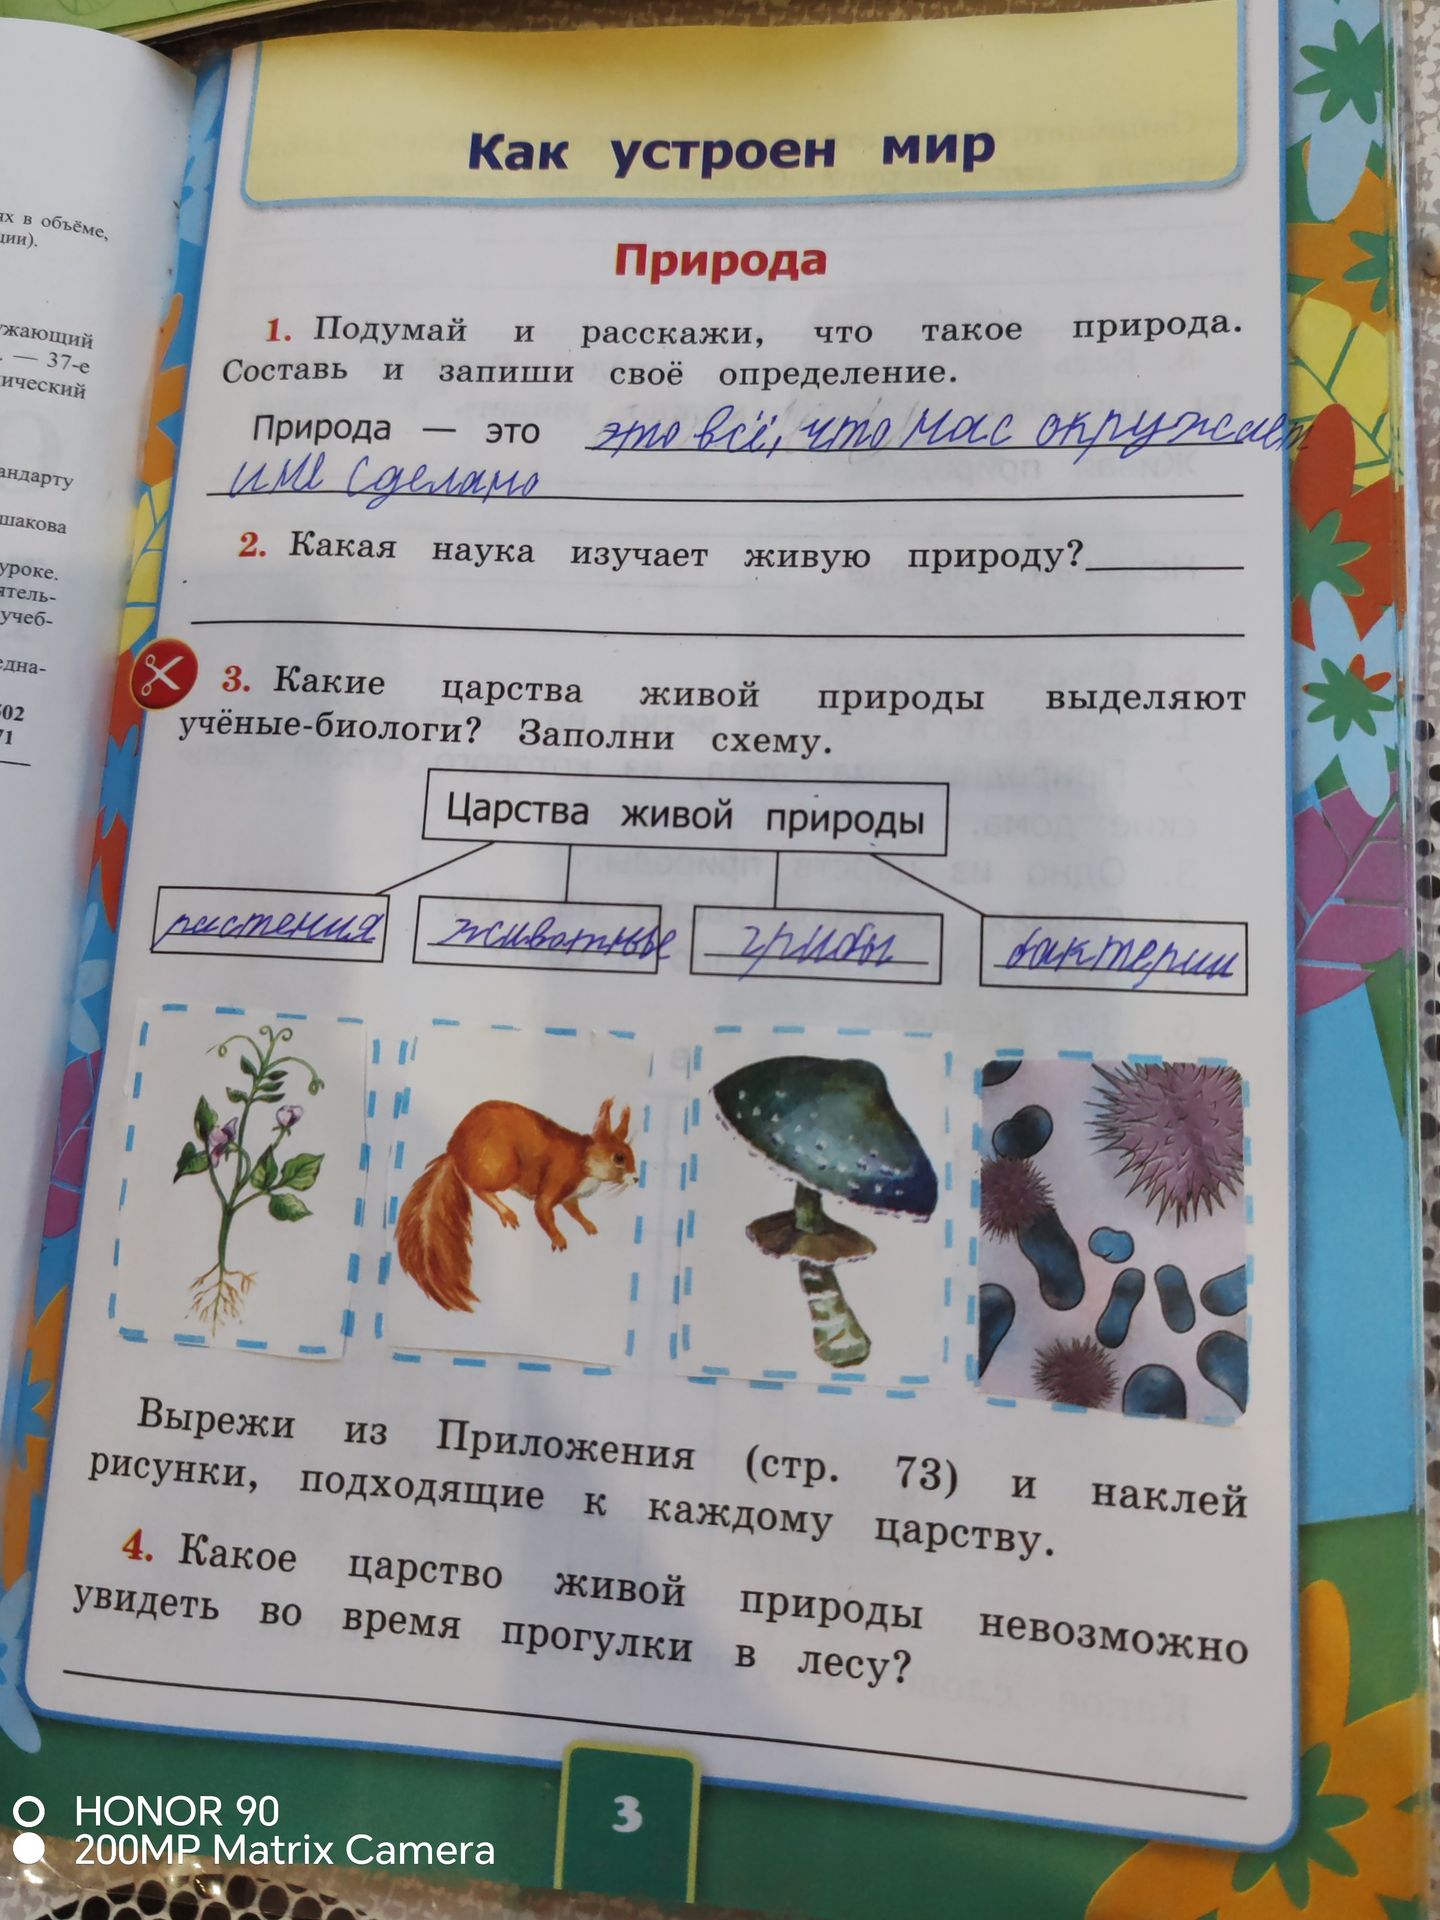 ях в объёме,
ции).
ужающий
. — 37-е
ический
андарту
шакова
уроке.
ятель-
учеб-
една-
502
71
Как устроен мир
Природа
1. Подумай и расскажи, что такое природа.
Составь и запиши своё определение.
Природа — это это всё, что нас окружает
и не сделано
2. Какая наука изучает живую природу?
3. Какие царства живой природы выделяют
учёные-биологи? Заполни схему.
Царства живой природы
растения животные грибы бактерии
Вырежи из Приложения (стр. 73) и наклей
рисунки, подходящие к каждому царству.
4. Какое царство живой природы невозможно
увидеть во время прогулки в лесу?
3
HONOR 90
200MP Matrix Camera